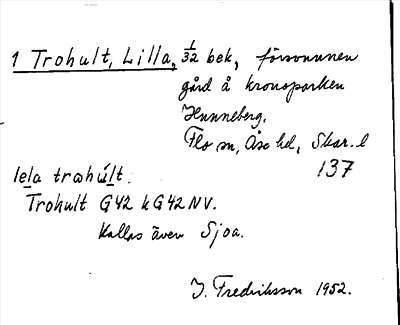 1 Trohult, Lilla, 1/32 bek, försvunnen
gård å kronoparken
Hunneberg.
Flo sn, Åse hd, Skar. l
137
lela trohult.
Trohult G42 k G42 NV.
Kallas även Sjoa.
J. Fredriksson 1952.